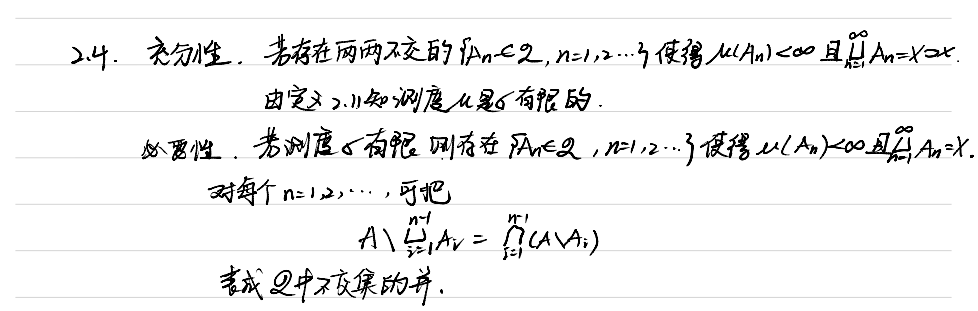 2.4. 充分性. 若存在两两不交的 {Aₙ∈𝒬, n=1,2…} 使得 μ(Aₙ)<∞ 且 ⋃ₙ₌₁^∞ Aₙ=X
由定义 2.11 知测度 μ 是 σ 有限的.
必要性. 若测度 σ 有限 则存在 {Aₙ∈𝒬, n=1,2…} 使得 μ(Aₙ)<∞ 且 ⋃ₙ₌₁^∞ Aₙ=X.
对每个 n=1,2,…, 可把
A \ ⋃ᵢ₌₁ⁿ⁻¹ Aᵢ = ⋂ᵢ₌₁ⁿ⁻¹ (A\Aᵢ)
表成 𝒬 中不交集的并.